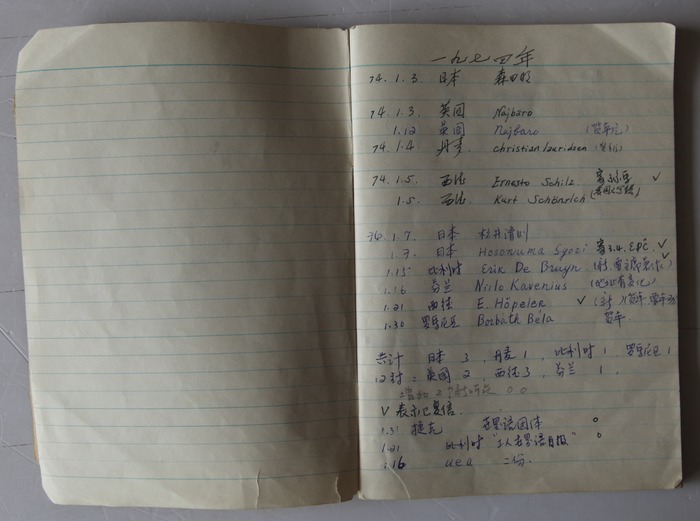 一九七四年
74.1.3. 日本 森田明
74.1.3. 英国 Najbaro
1.12 英国 Najbaro (贺年片)
74.1.4 丹麦 Christian Lauridsen
74.1.5. 西德 Ernesto Schilz
1.5. 西德 Kurt Schönrich
74.1.7. 日本 松井清则
1.7. 日本 Hosonuma Syozi 寄3.4.EPĈ ✓
1.15 比利时 Erik De Bruyn
1.16 芬兰 Niilo Kavenius (地址有变化)
1.21 西德 E. Höpeler ✓
1.30 罗马尼亚 Borbáth Béla 贺年
共计 日本 3, 丹麦 1, 比利时 1 罗马尼亚 1
12封: 英国 2, 西德 3, 芬兰 1.
✓ 表示已复信.
1.31 捷克 世界语团体
1.21 比利时
1.16 uea 二份.